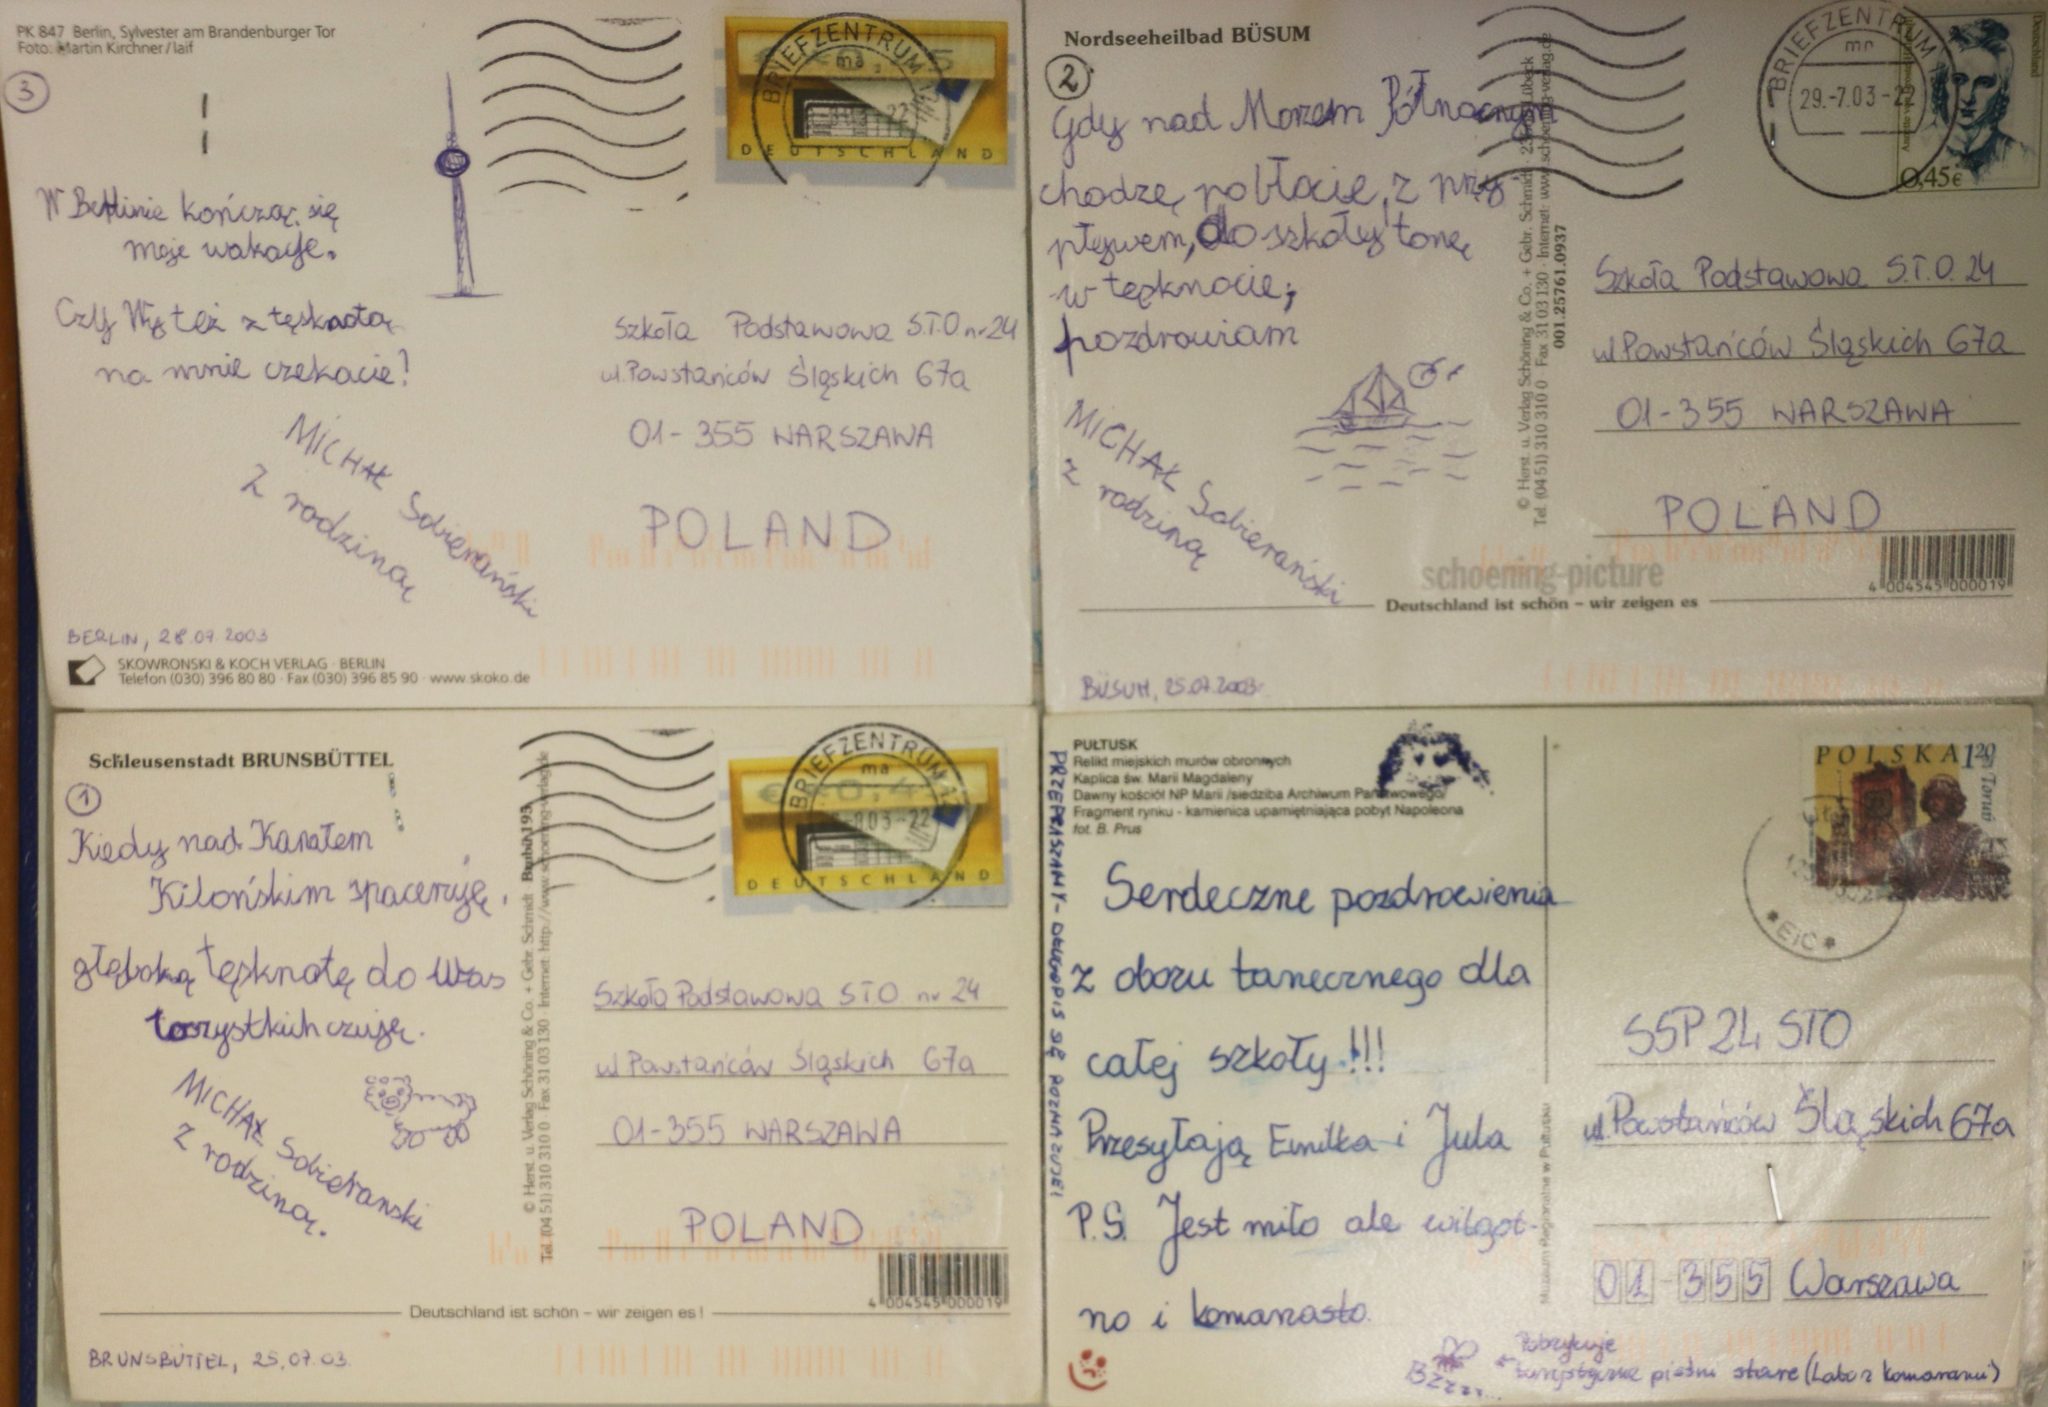 PK 847 Berlin, Sylvester am Brandenburger Tor
Foto: Martin Kirchner/laif
3
W Berlinie kończą się
moje wakacje.
Czy Wy też z tęsknotą
na mnie czekacie?
MICHAŁ Sobierański
z rodziną
BERLIN, 28.07.2003
SKOWRONSKI & KOCH VERLAG · BERLIN
Telefon (030) 396 80 80 · Fax (030) 396 85 90 · www.skoko.de
BRIEFZENTRUM
ma
DEUTSCHLAND
Szkoła Podstawowa S.T.O nr 24
ul. Powstańców Śląskich 67a
01-355 WARSZAWA
POLAND
Nordseeheilbad BÜSUM
2
Gdy nad Morzem Północnym
chodzę po błocie, z przy
pływem, do szkoły tonę
w tęsknocie;
pozdrawiam
MICHAŁ Sobierański
z rodziną
BÜSUM, 25.07.2003
© Herst. u. Verlag Schöning & Co. + Gebr. Schmidt · Lübeck
Tel. (04 51) 310 310 0 Fax 31 03 130 · Internet: www.schoening-verlag.de
001.25761.0937
BRIEFZENTRUM
mn
29.-7.03-
Deutschland
0,45€
Szkoła Podstawowa S.T.O. 24
ul Powstańców Śląskich 67a
01-355 WARSZAWA
POLAND
schoening-picture
4 004545 000019
Deutschland ist schön – wir zeigen es
Schleusenstadt BRUNSBÜTTEL
1
Kiedy nad Kanałem
Kilońskim spaceruję,
głęboką tęsknotę do Was
wszystkich czuję.
MICHAŁ Sobierański
z rodziną.
BRUNSBÜTTEL, 25.07.03.
© Herst. u. Verlag Schöning & Co. + Gebr. Schmidt
Tel. (04 51) 310 310 0 · Fax 31 03 130 · Internet: http://www.schoening-verlag.de
BRIEFZENTRUM
ma
DEUTSCHLAND
Szkoła Podstawowa STO nr 24
ul Powstańców Śląskich 67a
01-355 WARSZAWA
POLAND
4 004545 000019
Deutschland ist schön – wir zeigen es!
PUŁTUSK
Relikt miejskich murów obronnych
Kaplica św. Marii Magdaleny
Dawny kościół NP Marii /siedziba Archiwum Państwowego/
Fragment rynku - kamienica upamiętniająca pobyt Napoleona
fot. B. Prus
PRZEPRASZAMY - DŁUGOPIS SIĘ
Serdeczne pozdrowienia
z obozu tanecznego dla
całej szkoły!!!
Przesyłają Emilka i Jula
P.S. Jest miło ale wilgot-
no i komarzasto.
Bzzzz...
stare (Labo z komarami)
Muzeum Regionalne w Pułtusku
POLSKA 1,20
Toruń
SSP 24 STO
ul. Powstańców Śląskich 67a
01-355 Warszawa